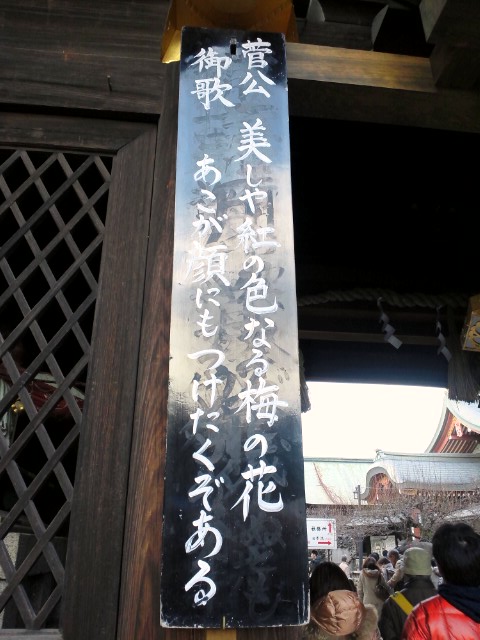 菅公御歌
美しや紅の色なる梅の花
あこが顔にもつけたくぞある